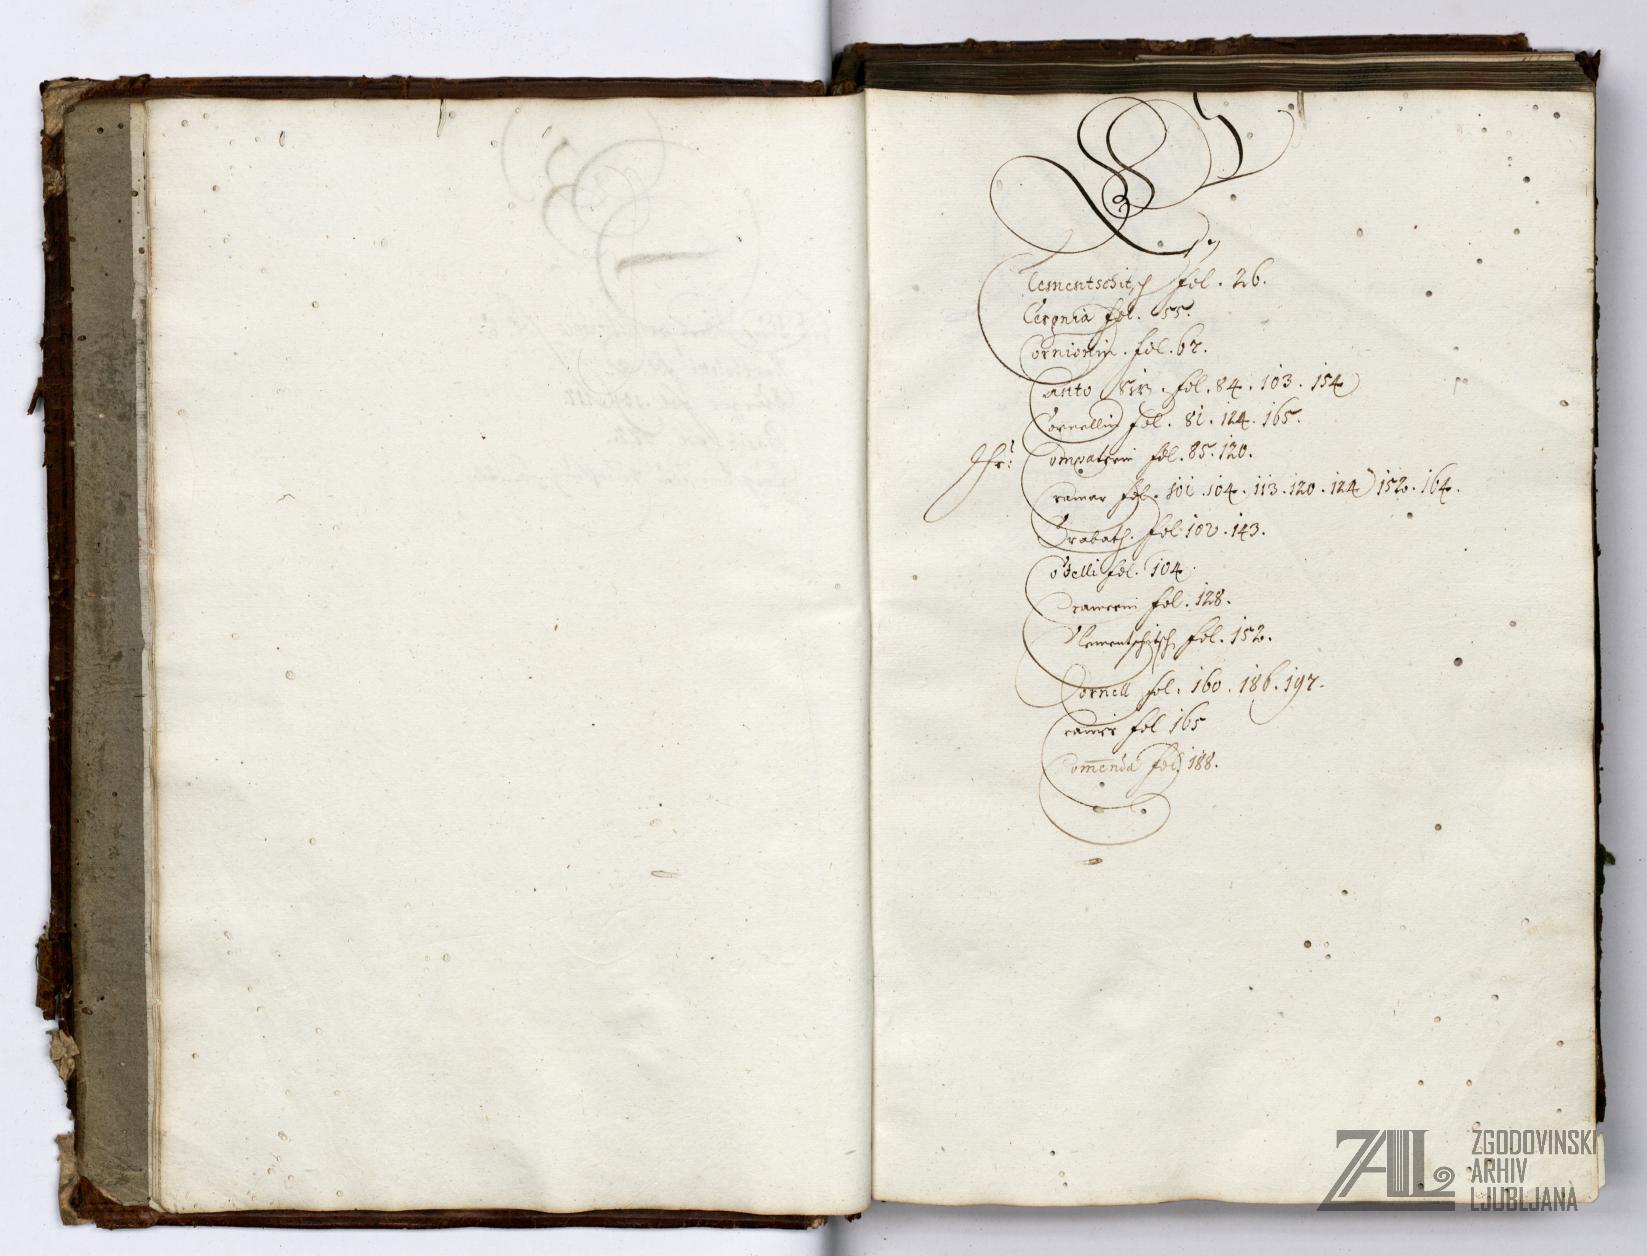 C
Clementschitsch fol. 26.
Ceronia fol. 55.
Cornionin. fol. 67.
Canto fol. 84. 103. 154
Cornellin fol. 81. 124. 165.
Fr: Compaterin fol. 85. 120.
Cramar fol. 101. 104. 113. 120. 124 152. 164.
Crabath. fol 102. 143.
Codelli fol. 104.
Cramerin fol. 128.
Clementschitsch fol. 152.
Cornell fol. 160. 186. 197.
Cramer fol 165
Comenda fol 188.
ZAL ZGODOVINSKI
ARHIV
LJUBLJANA